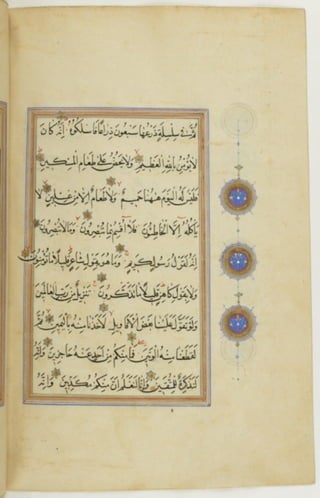 ثُمَّ فِي سِلْسِلَةٍ ذَرْعُهَا سَبْعُونَ ذِرَاعًا فَاسْلُكُوهُ إِنَّهُ كَانَ
لَا يُؤْمِنُ بِاللَّهِ الْعَظِيمِ وَلَا يَحُضُّ عَلَى طَعَامِ الْمِسْكِينِ
فَلَيْسَ لَهُ الْيَوْمَ هَاهُنَا حَمِيمٌ وَلَا طَعَامٌ إِلَّا مِنْ غِسْلِينٍ لَا
يَأْكُلُهُ إِلَّا الْخَاطِئُونَ فَلَا أُقْسِمُ بِمَا تُبْصِرُونَ وَمَا لَا تُبْصِرُونَ
إِنَّهُ لَقَوْلُ رَسُولٍ كَرِيمٍ وَمَا هُوَ بِقَوْلِ شَاعِرٍ قَلِيلًا مَا تُؤْمِنُونَ
وَلَا بِقَوْلِ كَاهِنٍ قَلِيلًا مَا تَذَكَّرُونَ تَنْزِيلٌ مِنْ رَبِّ الْعَالَمِينَ
وَلَوْ تَقَوَّلَ عَلَيْنَا بَعْضَ الْأَقَاوِيلِ لَأَخَذْنَا مِنْهُ بِالْيَمِينِ ثُمَّ
لَقَطَعْنَا مِنْهُ الْوَتِينَ فَمَا مِنْكُمْ مِنْ أَحَدٍ عَنْهُ حَاجِزِينَ وَإِنَّهُ
لَتَذْكِرَةٌ لِلْمُتَّقِينَ وَإِنَّا لَنَعْلَمُ أَنَّ مِنْكُمْ مُكَذِّبِينَ وَإِنَّهُ